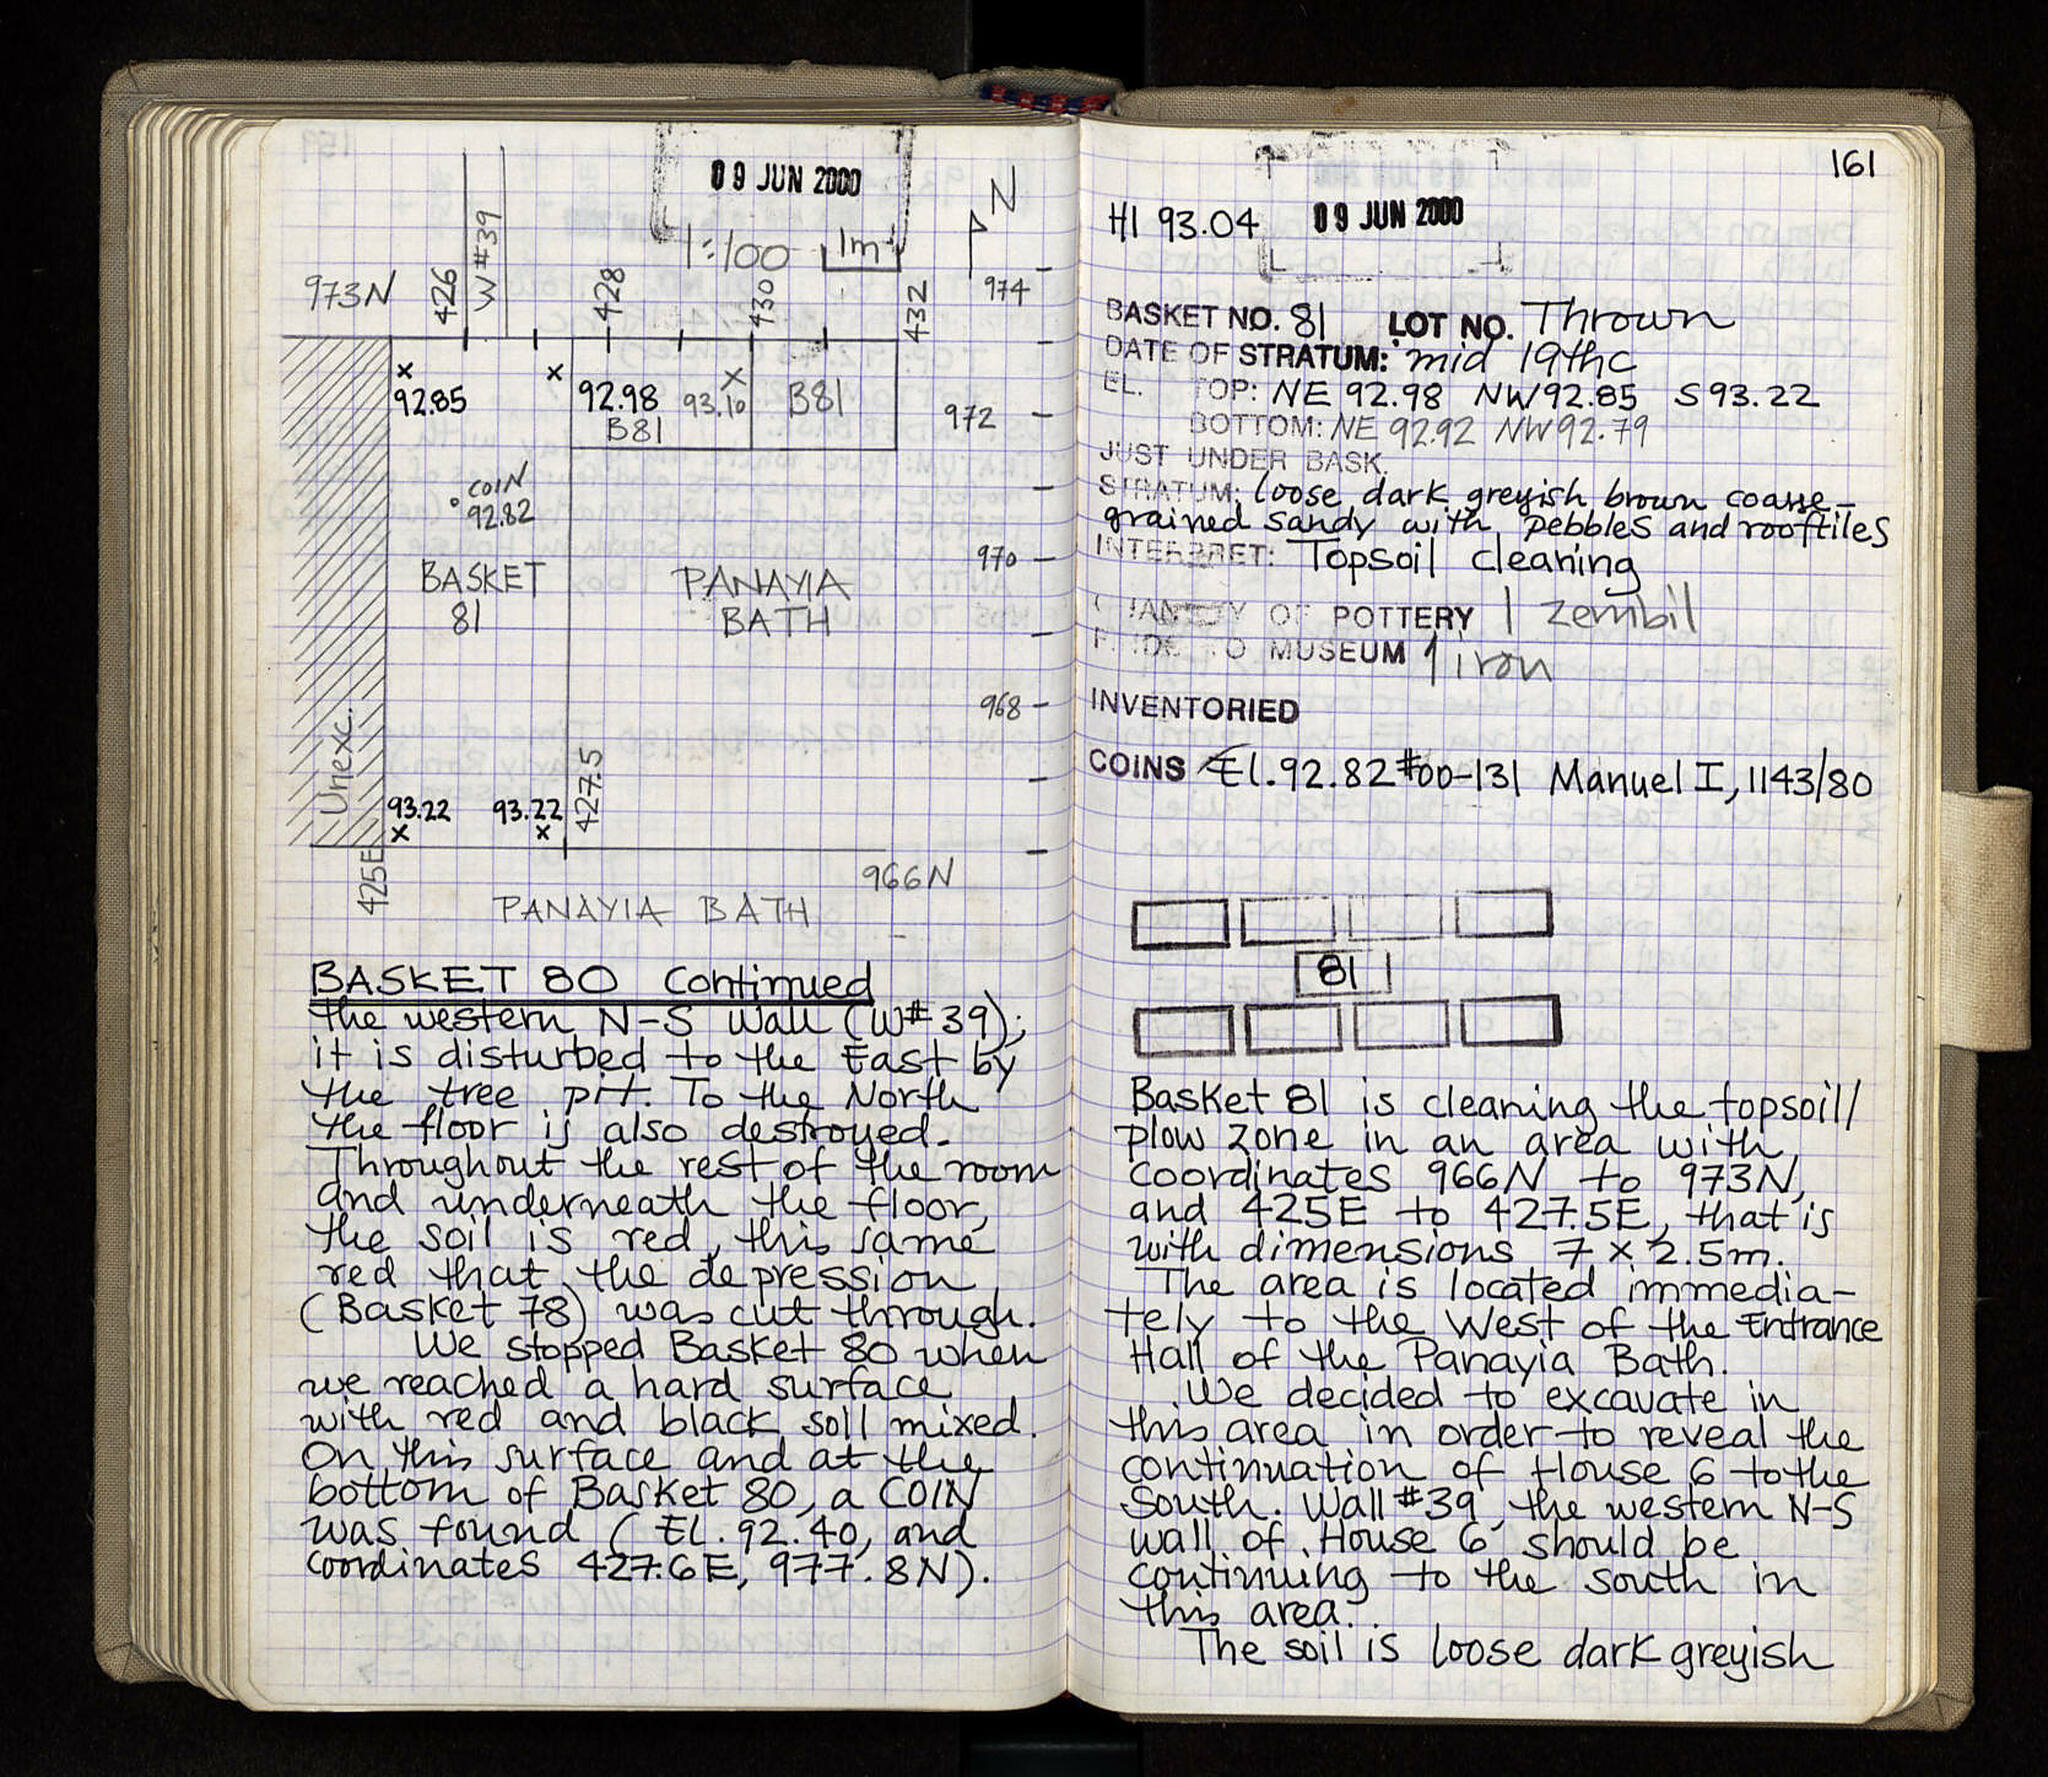 09 JUN 2000
1:100 1m
N
973N 426 W#39 428 430 432 974
92.85 92.98 93.10 B81
B81
972
COIN
92.82
970
BASKET
81
PANAYIA
BATH
968
Unexc.
427.5
93.22 93.22
425E
966N
PANAYIA BATH
BASKET 80 Continued
the western N-S wall (W#39);
it is disturbed to the East by
the tree pit. To the North
the floor is also destroyed.
Throughout the rest of the room
and underneath the floor,
the soil is red, this same
red that the depression
(Basket 78) was cut through.
We stopped Basket 80 when
we reached a hard surface
with red and black soil mixed.
On this surface and at the
bottom of Basket 80, a COIN
was found (EL. 92.40, and
coordinates 427.6E, 977.8N).
161
HI 93.04 09 JUN 2000
BASKET NO. 81 LOT NO. Thrown
DATE OF STRATUM: mid 19thc
EL. TOP: NE 92.98 NW92.85 S93.22
BOTTOM: NE 92.92 NW92.79
JUST UNDER BASK.
STRATUM: loose dark greyish brown coarse-
grained sandy with pebbles and rooftiles
INTERPRET: Topsoil cleaning
QUANTITY OF POTTERY 1 zembil
FINDS TO MUSEUM 1 iron
INVENTORIED
COINS El.92.82 #00-131 Manuel I, 1143/80
81
Basket 81 is cleaning the topsoil/
plow zone in an area with
coordinates 966N to 973N,
and 425E to 427.5E, that is
with dimensions 7 x 2.5m.
The area is located immedia-
tely to the West of the Entrance
Hall of the Panayia Bath.
We decided to excavate in
this area in order to reveal the
continuation of House 6 to the
South. Wall #39, the western N-S
wall of House 6 should be
continuing to the south in
this area.
The soil is loose dark greyish